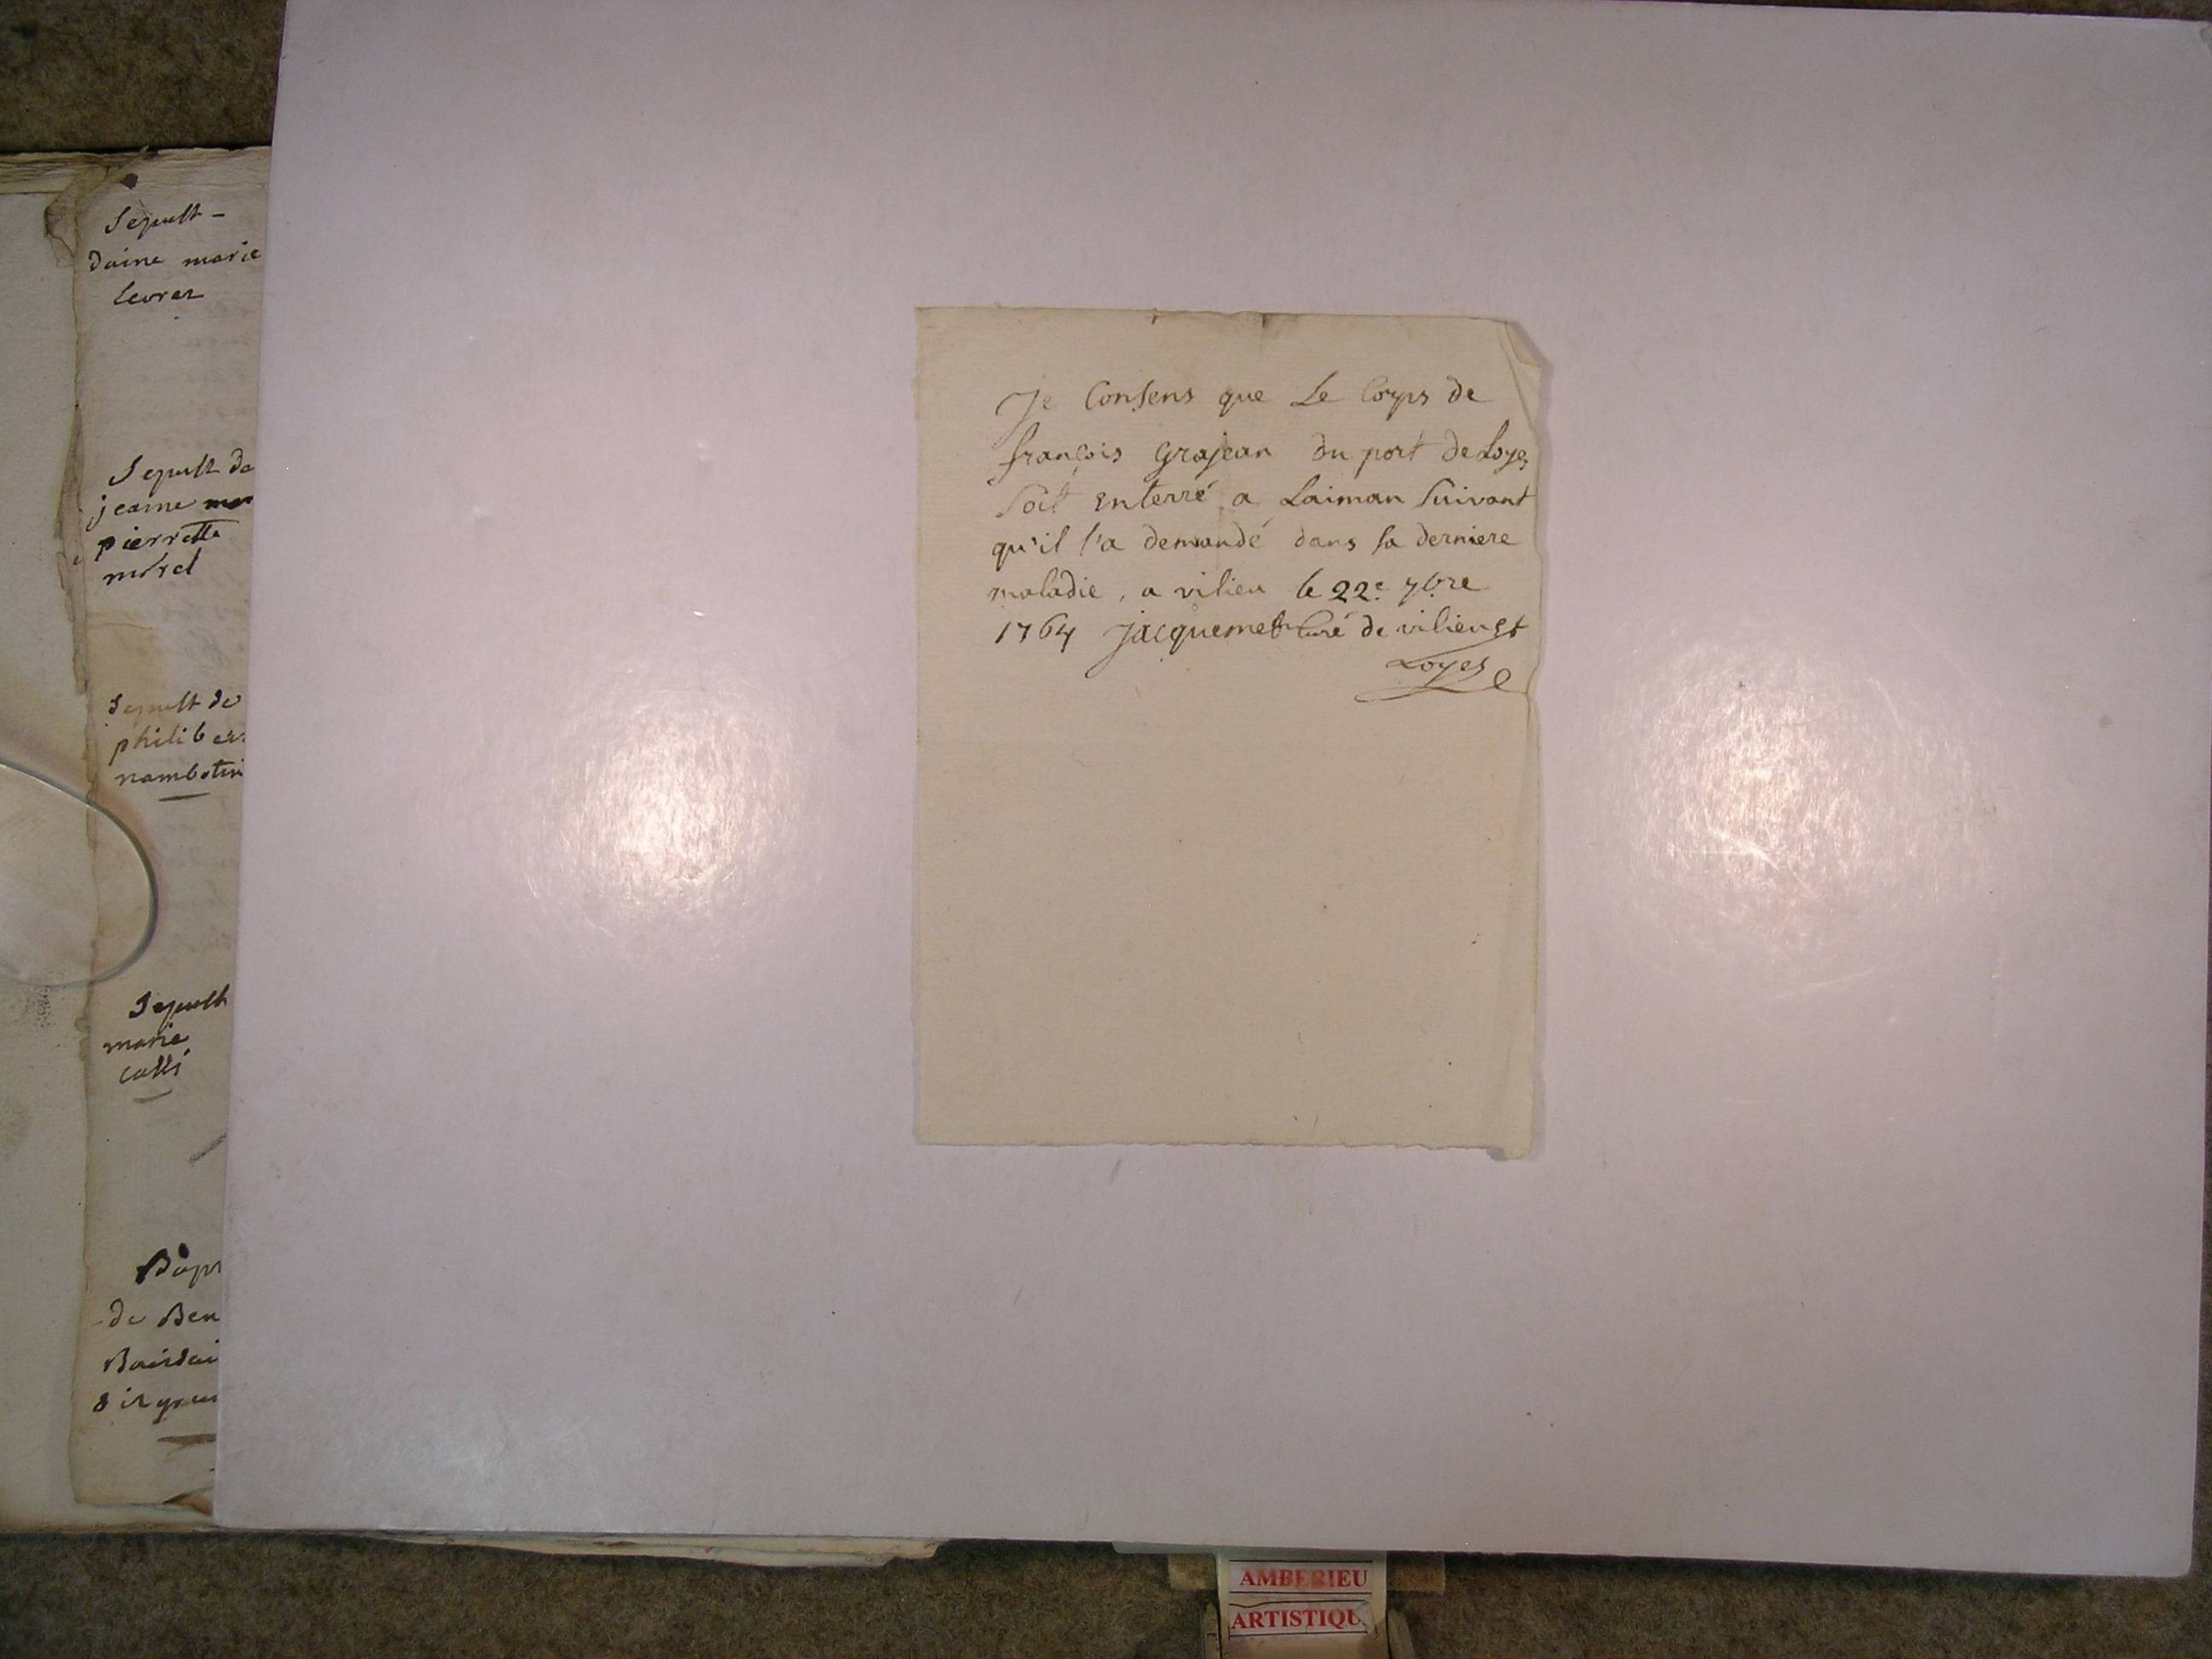 Sepult -
daine marie
levrer
Sepult de
jeanne
pierrette
morel
Sepult de
philiber
nambotin
Sepult
marie
catti
Bapt
de Ben
Je Consens que Le Corps de
françois Grajean du port de Loyes
soit enterré a Laiman suivant
qu'il l'a demandé dans sa derniere
maladie, a vilieu le 22e 7bre
1764 Jacquemet curé de vilieu et
Loyes
AMBERIEU
ARTISTIQU